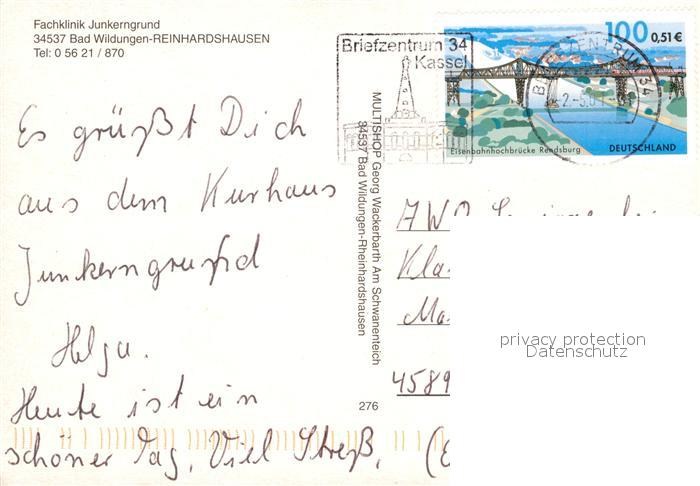 Fachklinik Junkerngrund
34537 Bad Wildungen-REINHARDSHAUSEN
Tel: 0 56 21 / 870
Es grüßt Dich
aus dem Kurhaus
Junkerngrund
Helga.
Heute ist ein
schöner Tag, Viel Streß.
MULTISHOP Georg Wackerbarth Am Schwanenteich
34537 Bad Wildungen-Rheinhardshausen
276
Briefzentrum 34
Kassel
100 0,51€
BRIEFZENTRUM 34
Eisenbahnhochbrücke Rendsburg
DEUTSCHLAND
AWO
Kla
Ma
4589
privacy protection
Datenschutz